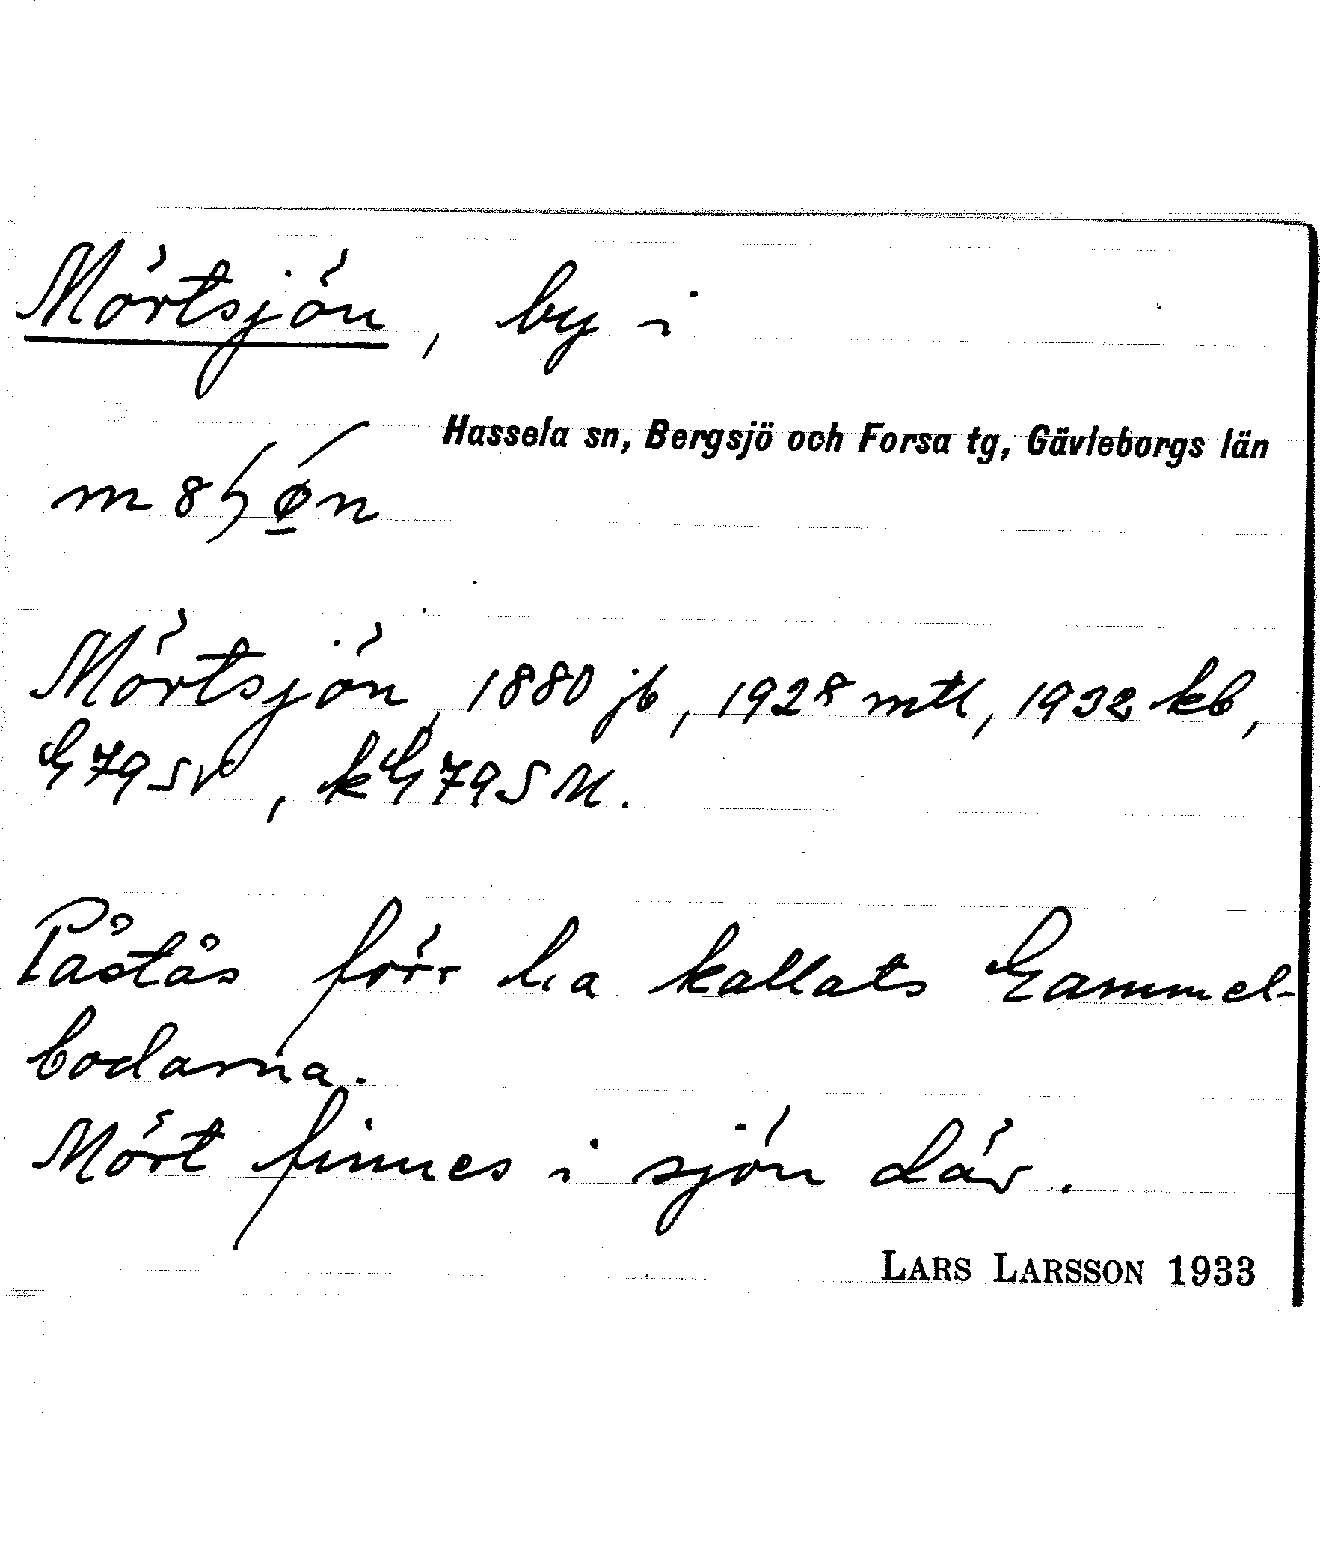 Mörtsjön, by i
Hassela sn, Bergsjö och Forsa tg, Gävleborgs län
Mörtsjön, 1880 jb, 1928 mtl, 1932 kb,
G79SV, kG79SM.
Påstås förr ha kallats Gammel-
bodarna.
Mört finnes i sjön där.
LARS LARSSON 1933